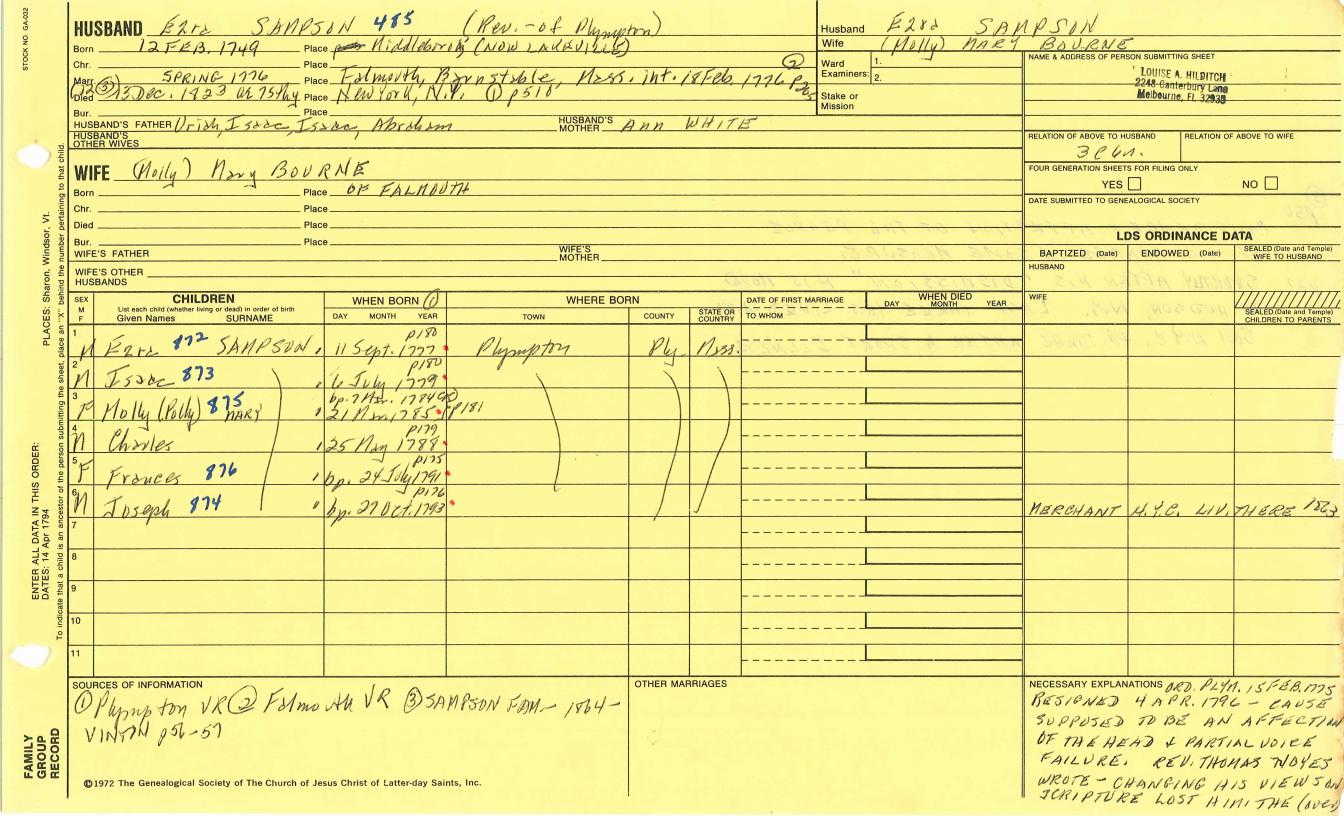 STOCK NO. GA-002
HUSBAND Ezra SAMPSON 485 (Rev. - of Plympton)
Born 12 FEB. 1749 Place Middleboro (NOW LAKEVILLE)
Chr. Place
Marr. SPRING 1776 Place Falmouth, Barnstable, Mass. int. 18 Feb. 1776 ②
Died 13 Dec. 1823 Place New York, N.Y. ① p510
Bur. Place
HUSBAND'S FATHER Uriah, Isaac, Isaac, Abraham HUSBAND'S MOTHER Ann WHITE
HUSBAND'S OTHER WIVES
WIFE (Molly) Mary BOURNE
Born Place OF FALMOUTH
Chr. Place
Died Place
Bur. Place
WIFE'S FATHER WIFE'S MOTHER
WIFE'S OTHER HUSBANDS
Husband Ezra SAMPSON
Wife (Molly) MARY BOURNE
Ward Examiners: 1.
2.
Stake or Mission
NAME & ADDRESS OF PERSON SUBMITTING SHEET
LOUISE A. HILDITCH
2248 Canterbury Lane
Melbourne, Fl. 32935
RELATION OF ABOVE TO HUSBAND RELATION OF ABOVE TO WIFE
FOUR GENERATION SHEETS FOR FILING ONLY
YES NO
DATE SUBMITTED TO GENEALOGICAL SOCIETY
LDS ORDINANCE DATA
BAPTIZED (Date) ENDOWED (Date) SEALED (Date and Temple) WIFE TO HUSBAND
HUSBAND
WIFE
SEALED (Date and Temple) CHILDREN TO PARENTS
SEX M F CHILDREN WHEN BORN ① WHERE BORN DATE OF FIRST MARRIAGE WHEN DIED
List each child (whether living or dead) in order of birth
Given Names SURNAME DAY MONTH YEAR TOWN COUNTY STATE OR COUNTRY TO WHOM DAY MONTH YEAR
1 M Ezra 872 SAMPSON 11 Sept. 1777 p180 Plympton Ply Mass.
2 M Isaac 873 6 July 1779 p180
3 F Molly (Polly) MARY 875 bp. 7 Mar. 1784 21 Mar. 1785 p181
4 M Charles 25 May 1788 p179
5 F Frances 876 bp. 24 July 1791 p175
6 M Joseph 874 bp. 27 Oct. 1793 p176 MERCHANT N.Y.C. LIV. THERE 1863
7
8
9
10
11
SOURCES OF INFORMATION
① Plympton VR ② Falmouth VR ③ SAMPSON FAM - 1864 -
VINTON p56-57
OTHER MARRIAGES
NECESSARY EXPLANATIONS ORD. PLYM. 15 FEB. 1775
RESIGNED 4 APR. 1796 - CAUSE
SUPPOSED TO BE AN AFFECTION
OF THE HEAD & PARTIAL VOICE
FAILURE. REV. THOMAS NOYES
WROTE - CHANGING HIS VIEWS ON
SCRIPTURE LOST HIM THE (over)
©1972 The Genealogical Society of The Church of Jesus Christ of Latter-day Saints, Inc.
FAMILY GROUP RECORD
ENTER ALL DATA IN THIS ORDER:
DATES: 14 Apr 1794
PLACES: Sharon, Windsor, Vt.
To indicate that a child is an ancestor of the person submitting the sheet, place an "X" behind the number pertaining to that child.